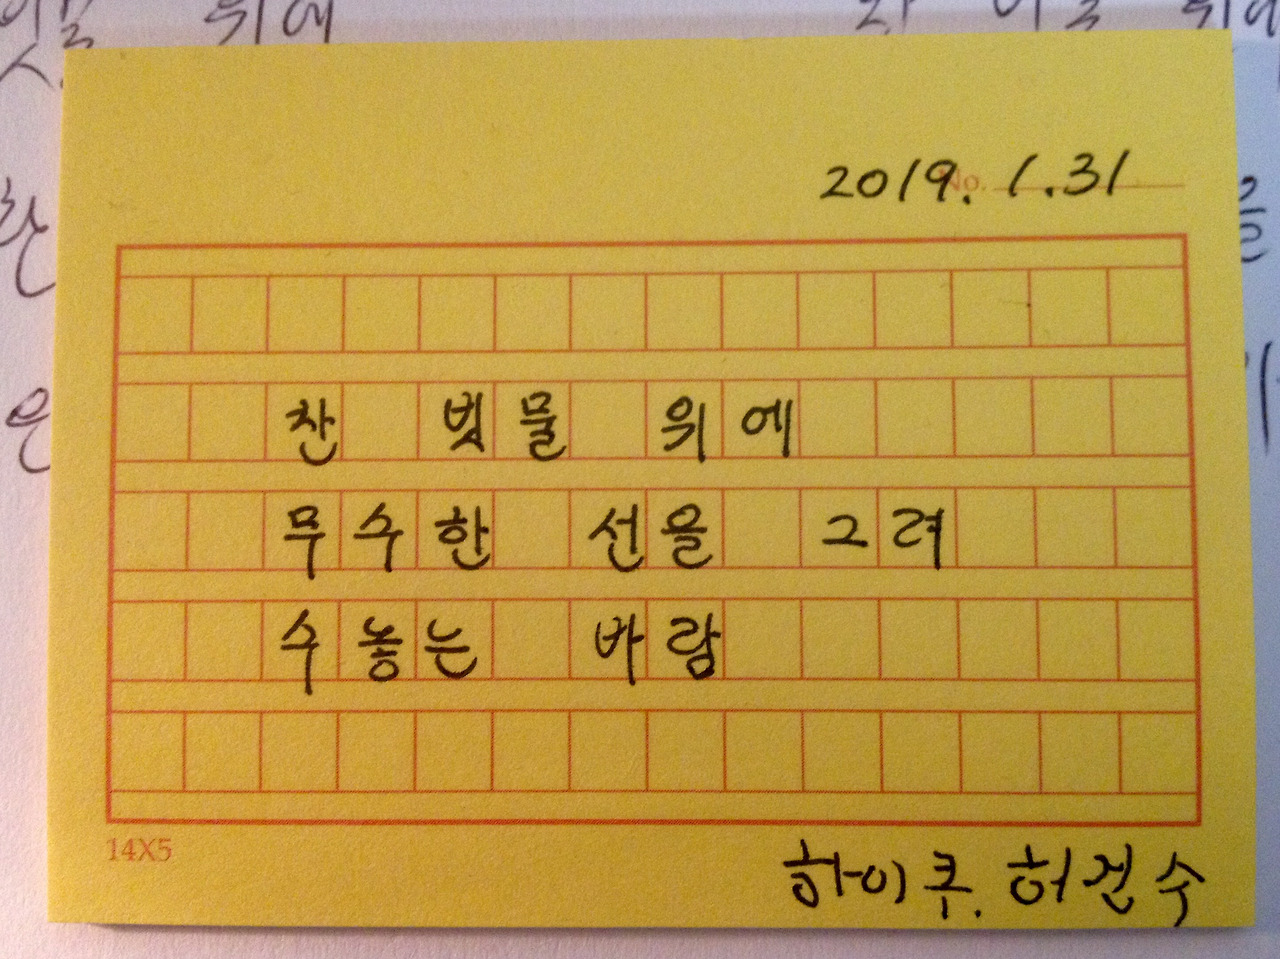 2019. 1. 31
No.
찬 빗물 위에
무수한 선을 그려
수놓는 바람
14X5
하이쿠. 허건수